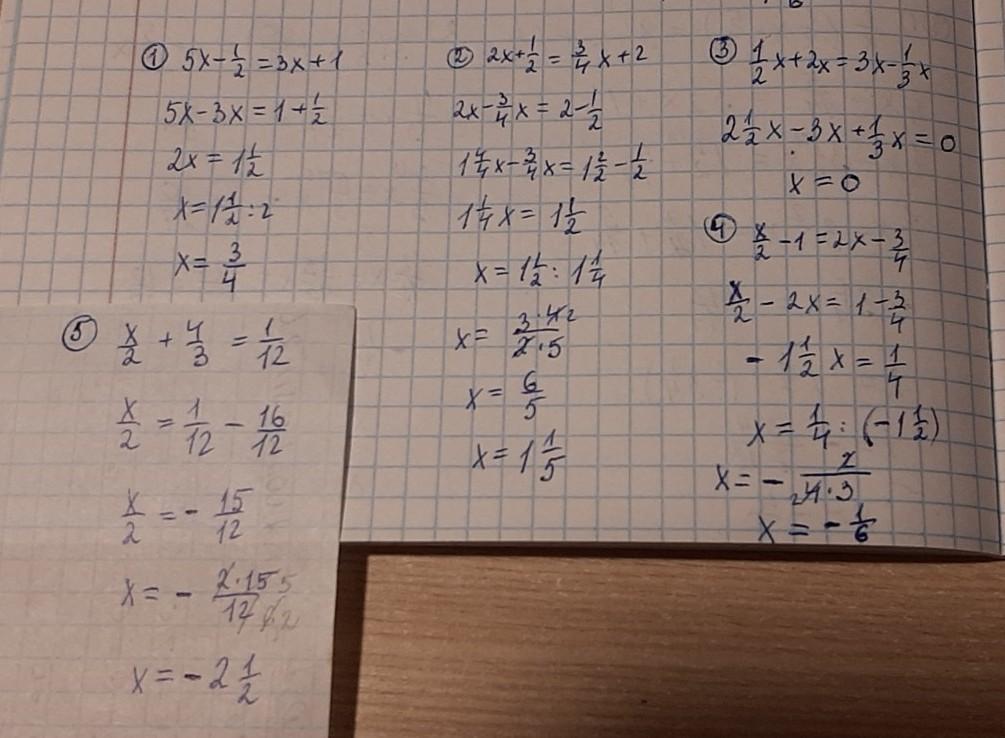 ① 5x - 1/2 = 3x + 1
5x - 3x = 1 + 1/2
2x = 1 1/2
x = 1 1/2 : 2
x = 3/4
② 2x + 1/2 = 3/4 x + 2
2x - 3/4 x = 2 - 1/2
1 4/4 x - 3/4 x = 1 2/2 - 1/2
1 1/4 x = 1 1/2
x = 1 1/2 : 1 1/4
x = 3·4 2/2·5
x = 6/5
x = 1 1/5
③ 1/2 x + 2x = 3x - 1/3 x
2 1/2 x - 3x + 1/3 x = 0
x = 0
④ x/2 - 1 = 2x - 3/4
x/2 - 2x = 1 - 3/4
- 1 1/2 x = 1/4
x = 1/4 : (-1 1/2)
x = - 2/2 4·3
x = - 1/6
⑤ x/2 + 4/3 = 1/12
x/2 = 1/12 - 16/12
x/2 = - 15/12
x = - 2·15 5/12 6 2
x = - 2 1/2